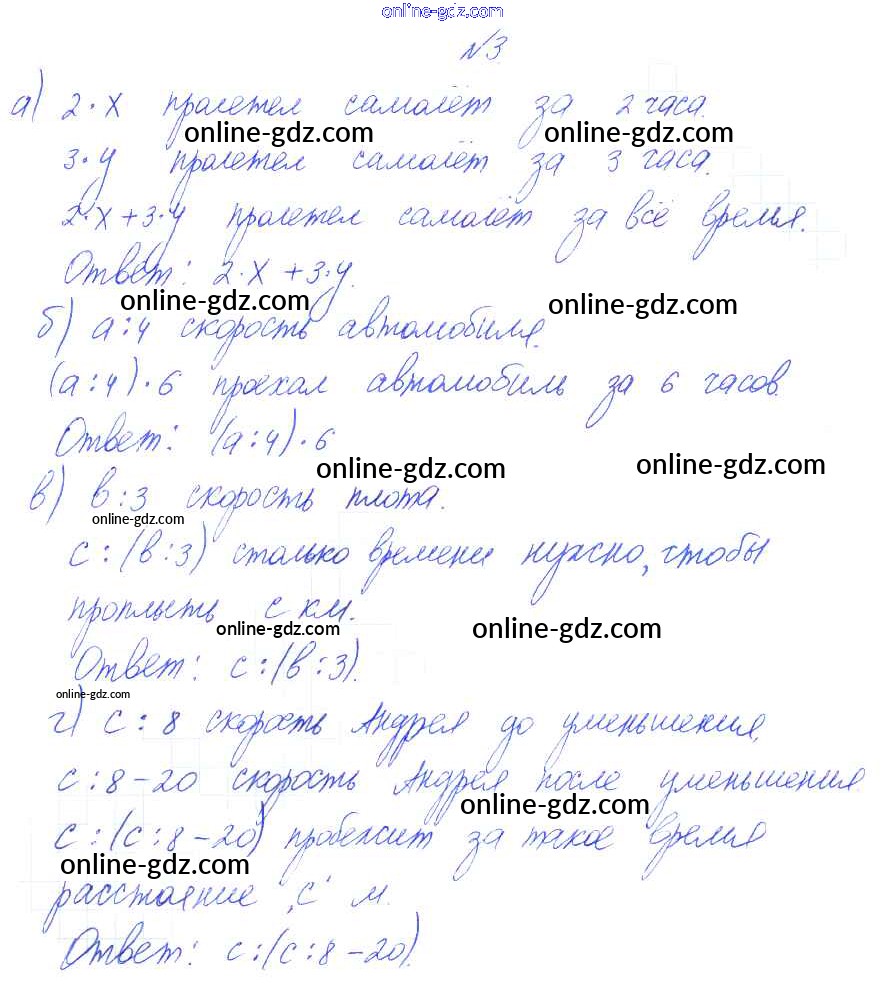 online-gdz.com
№3
а) 2·х пролетел самолёт за 2 часа.
online-gdz.com online-gdz.com
3·у пролетел самолёт за 3 часа.
2·х+3·у пролетел самолёт за всё время.
Ответ: 2·х+3·у.
online-gdz.com online-gdz.com
б) а:4 скорость автомобиля.
(а:4)·6 проехал автомобиль за 6 часов.
Ответ: (а:4)·6
online-gdz.com online-gdz.com
в) в:3 скорость плота.
online-gdz.com
с:(в:3) столько времени нужно, чтобы
проплыть с км.
online-gdz.com online-gdz.com
Ответ: с:(в:3).
online-gdz.com
г) с:8 скорость Андрея до уменьшения.
с:8-20 скорость Андрея после уменьшения.
online-gdz.com
с:(с:8-20) пробежит за такое время
online-gdz.com
расстояние ,с' м.
online-gdz.com
Ответ: с:(с:8-20).